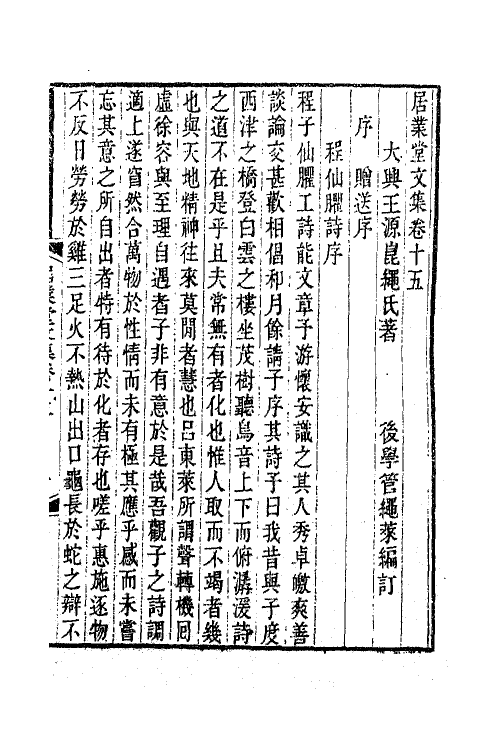 居業堂文集卷十五
大興王源崑繩氏著　後學管繩萊編訂
序　贈送序
程仙臞詩序
程子仙臞工詩能文章予游懷安識之其人秀卓皦爽善
談論交甚歡相倡和月餘請予序其詩予曰我昔與子度
西津之橋登白雲之樓坐茂樹聽鳥音上下而俯潺湲詩
之道不在是乎且夫常無有者化也惟人取而不竭者幾
也與天地精神往來莫閒者慧也呂東萊所謂聲轉機回
虛徐容與至理自遇者子非有意於是哉吾觀子之詩調
適上遂窅然合萬物於性情而未有極其應乎感而未嘗
忘其意之所自出者特有待於化者存也嗟乎惠施逐物
不反日勞勞於雞三足火不熱山出口龜長於蛇之辯不